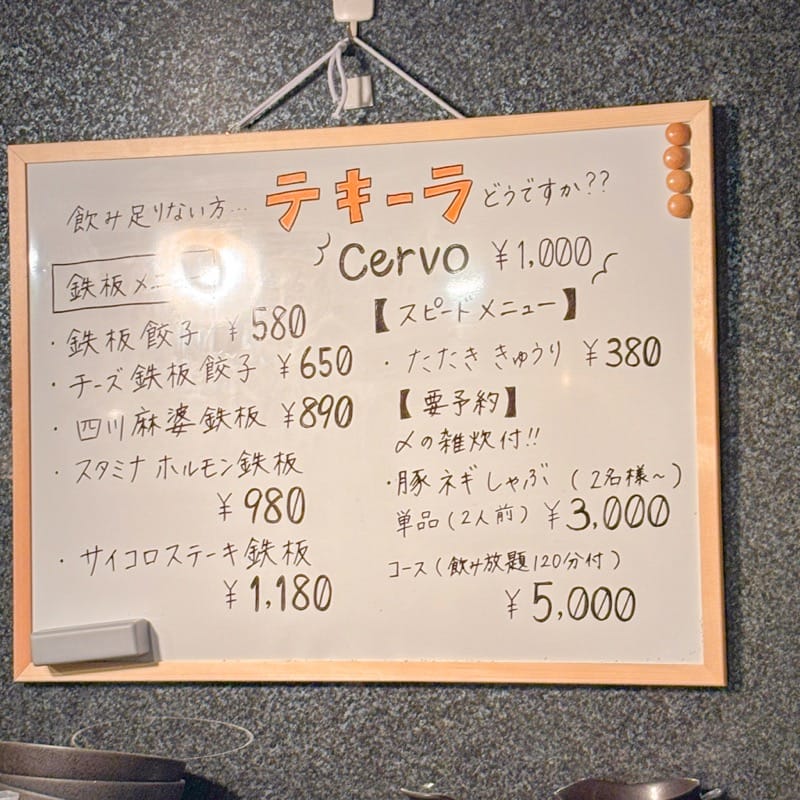 飲み足りない方… テキーラ どうですか??
Cervo ¥1,000
鉄板メニュー
・鉄板餃子 ¥580
・チーズ鉄板餃子 ¥650
・四川麻婆鉄板 ¥890
・スタミナホルモン鉄板
¥980
・サイコロステーキ鉄板
¥1,180
【スピードメニュー】
・たたききゅうり ¥380
【要予約】
〆の雑炊付!!
・豚ネギしゃぶ (2名様～)
単品(2人前) ¥3,000
コース(飲み放題120分付)
¥5,000